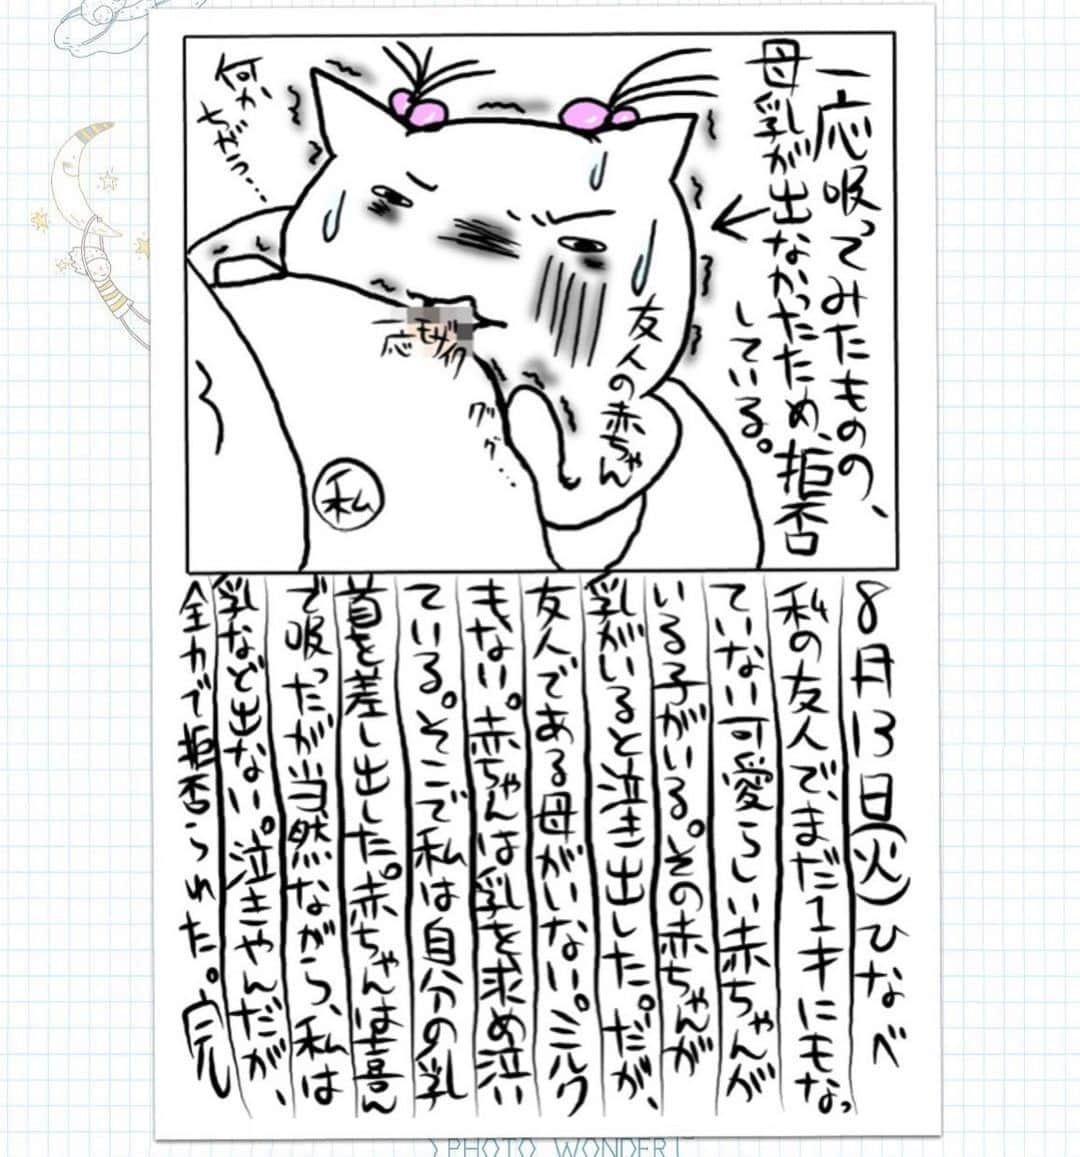 一応吸ってみたものの、
母乳が出なかったため、拒否
している。
←
友人の赤ちゃん
何か
ちがう…
一応
モザイク
ググ…
私
8月13日(火)ひなべ
私の友人で、まだ1才にもなっ
ていない可愛らしい赤ちゃんが
いる子がいる。その赤ちゃんが
乳がいると泣き出した。だが、
友人である母がいない。ミルク
もない。赤ちゃんは乳を求め泣い
ている。そこで私は自分の乳
首を差し出した。赤ちゃんは喜ん
で吸ったが当然ながら、私は
乳など出ない。泣きやんだが、
全力で拒否られた。完
PHOTO WONDER